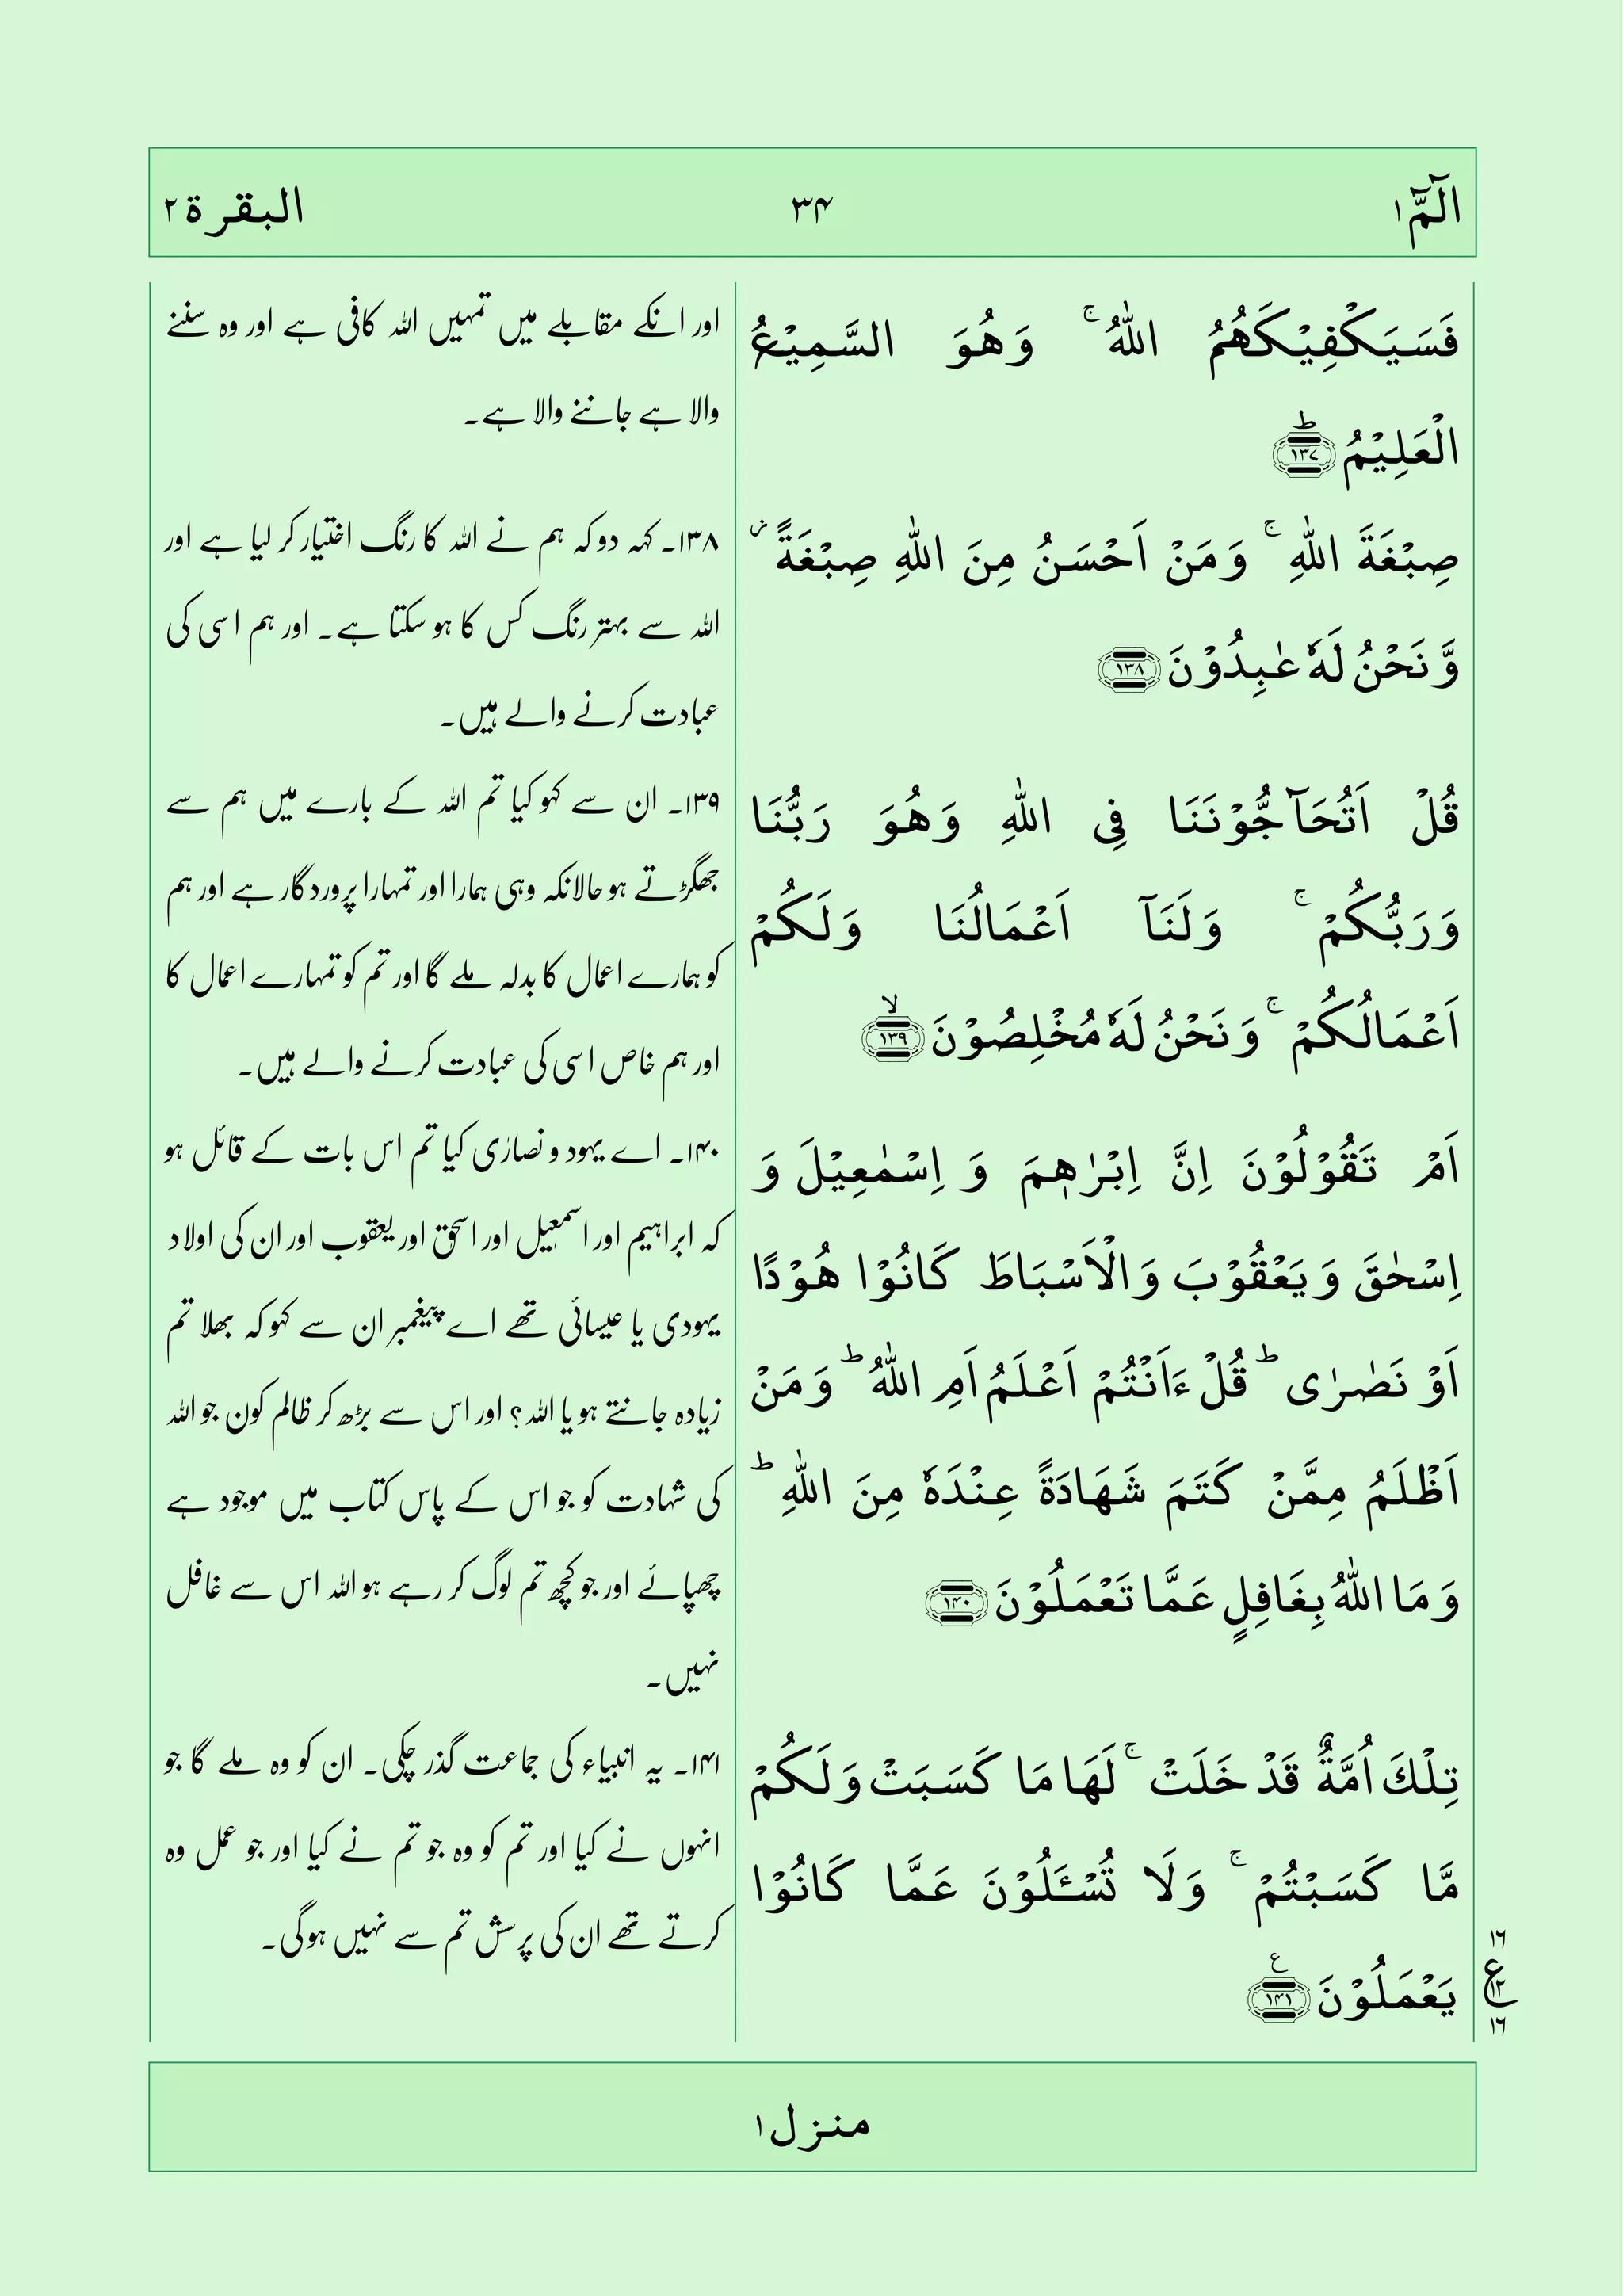 الٓمّٓ ۱
۳۴
البقرة ۲
فَسَيَكْفِيْكَهُمُ اللّٰهُ ۚ وَهُوَ السَّمِيْعُ
الْعَلِيْمُ ؕ﴿۱۳۷﴾
صِبْغَةَ اللّٰهِ ۚ وَمَنْ اَحْسَنُ مِنَ اللّٰهِ صِبْغَةً ۫
وَّنَحْنُ لَهٗ عٰبِدُوْنَ ﴿۱۳۸﴾
قُلْ اَتُحَآجُّوْنَنَا فِى اللّٰهِ وَهُوَ رَبُّنَا
وَرَبُّكُمْ ۚ وَلَنَآ اَعْمَالُنَا وَلَكُمْ
اَعْمَالُكُمْ ۚ وَنَحْنُ لَهٗ مُخْلِصُوْنَ ۙ﴿۱۳۹﴾
اَمْ تَقُوْلُوْنَ اِنَّ اِبْرٰهٖمَ وَ اِسْمٰعِيْلَ وَ
اِسْحٰقَ وَيَعْقُوْبَ وَالْاَسْبَاطَ كَانُوْا هُوْدًا
اَوْ نَصٰرٰى ؕ قُلْ ءَاَنْتُمْ اَعْلَمُ اَمِ اللّٰهُ ؕ وَمَنْ
اَظْلَمُ مِمَّنْ كَتَمَ شَهَادَةً عِنْدَهٗ مِنَ اللّٰهِ ؕ
وَمَا اللّٰهُ بِغَافِلٍ عَمَّا تَعْمَلُوْنَ ﴿۱۴۰﴾
تِلْكَ اُمَّةٌ قَدْ خَلَتْ ۚ لَهَا مَا كَسَبَتْ وَلَكُمْ
مَّا كَسَبْتُمْ ۚ وَلَا تُسْـَٔلُوْنَ عَمَّا كَانُوْا
يَعْمَلُوْنَ ﴿۱۴۱﴾ ع
۱۶
ع ۱۲
۱۶
اور انکے مقابلے میں تمہیں اللہ کافی ہے اور وہ سننے
والا ہے جاننے والا ہے۔
۱۳۸۔ کہہ دو کہ ہم نے اللہ کا رنگ اختیار کر لیا ہے اور
اللہ سے بہتر رنگ کس کا ہو سکتا ہے۔ اور ہم اسی کی
عبادت کرنے والے ہیں۔
۱۳۹۔ ان سے کہو کیا تم اللہ کے بارے میں ہم سے
جھگڑتے ہو حالانکہ وہی ہمارا اور تمہارا پروردگار ہے اور ہم
کو ہمارے اعمال کا بدلہ ملے گا اور تم کو تمہارے اعمال کا
اور ہم خاص اسی کی عبادت کرنے والے ہیں۔
۱۴۰۔ اے یہود و نصارٰی کیا تم اس بات کے قائل ہو
کہ ابراہیم اور اسمٰعیل اور اسحٰق اور یعقوب اور ان کی اولاد
یہودی یا عیسائی تھے اے پیغمبر ان سے کہو کہ بھلا تم
زیادہ جانتے ہو یا اللہ؟ اور اس سے بڑھ کر ظالم کون جو اللہ
کی شہادت کو جو اس کے پاس کتاب میں موجود ہے
چھپائے اور جو کچھ تم لوگ کر رہے ہو اللہ اس سے غافل
نہیں۔
۱۴۱۔ یہ انبیاء کی جماعت گذر چکی۔ ان کو وہ ملے گا جو
انہوں نے کیا اور تم کو وہ جو تم نے کیا اور جو عمل وہ
کرتے تھے ان کی پرسش تم سے نہیں ہوگی۔
منزل ۱